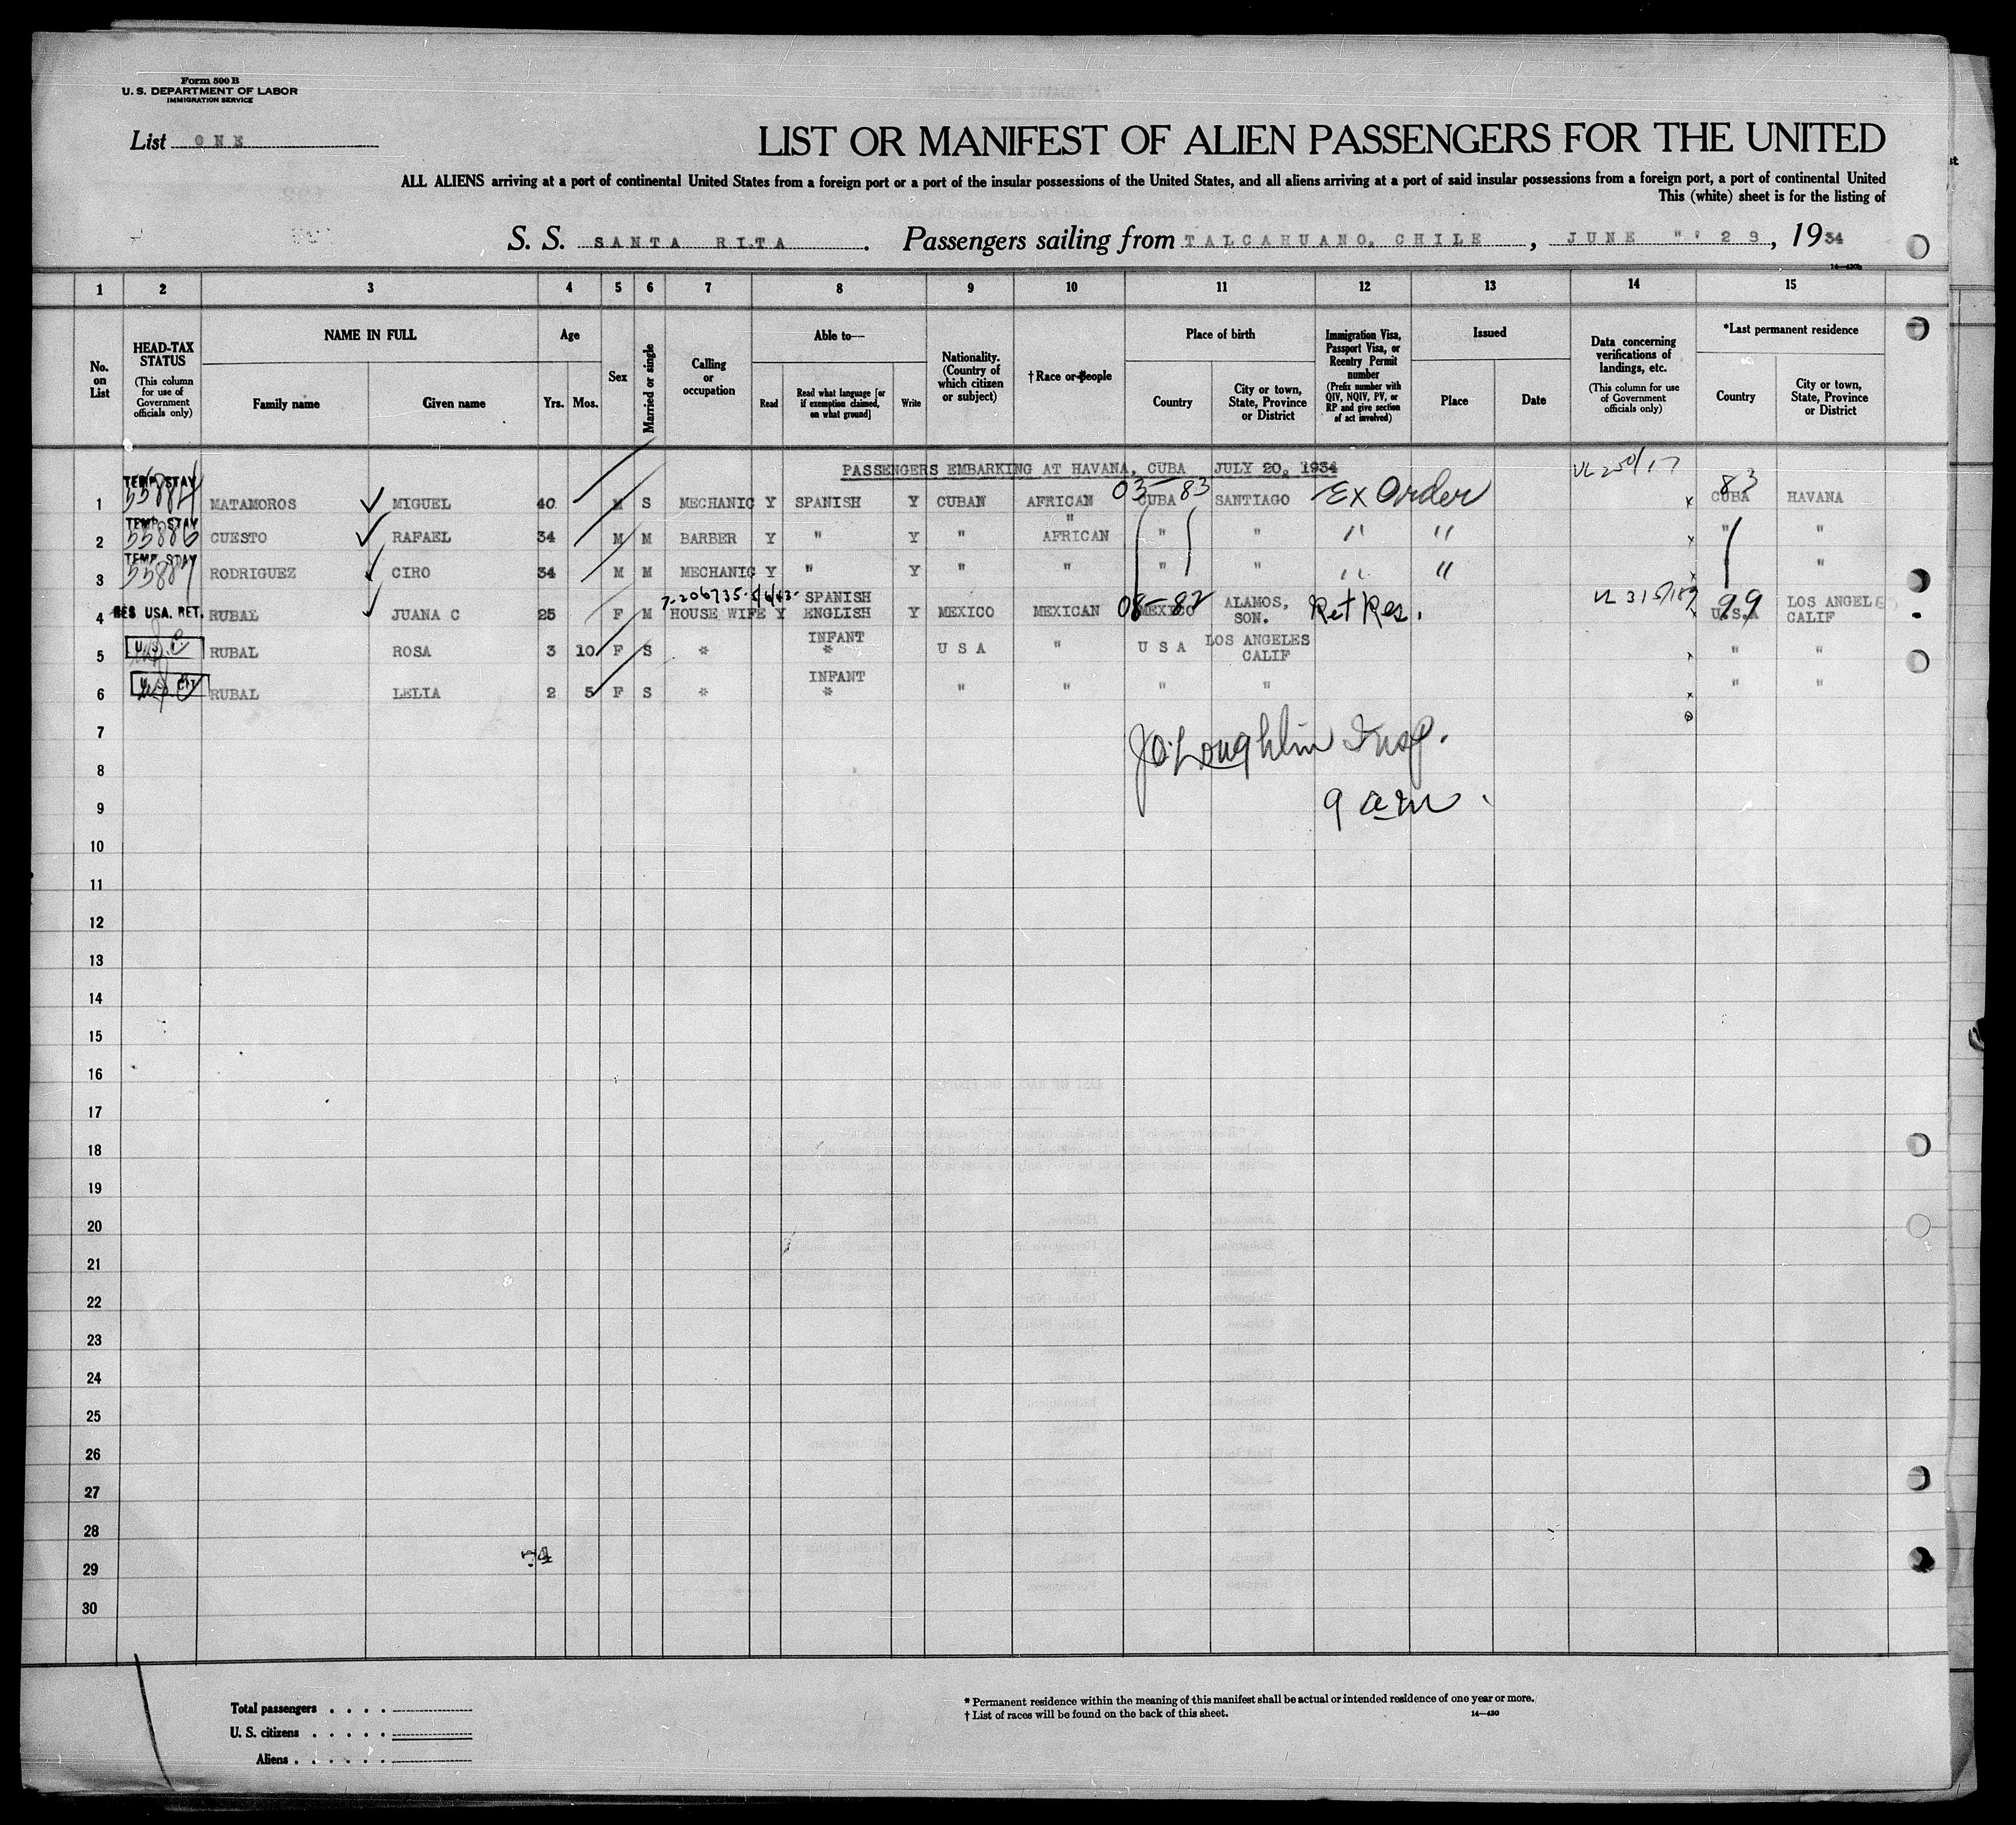 Form 500 B
U. S. DEPARTMENT OF LABOR
IMMIGRATION SERVICE
List ONE
LIST OR MANIFEST OF ALIEN PASSENGERS FOR THE UNITED
ALL ALIENS arriving at a port of continental United States from a foreign port or a port of the insular possessions of the United States, and all aliens arriving at a port of said insular possessions from a foreign port, a port of continental United
This (white) sheet is for the listing of
S. S. SANTA RITA. Passengers sailing from TALCAHUANO, CHILE, JUNE 29, 1934
14—430b
1 2 3 4 5 6 7 8 9 10 11 12 13 14 15
No. on List
HEAD-TAX STATUS (This column for use of Government officials only)
NAME IN FULL
Family name
Given name
Age
Yrs. Mos.
Sex
Married or single
Calling or occupation
Able to—
Read
Read what language [or if exemption claimed, on what ground]
Write
Nationality. (Country of which citizen or subject)
† Race or People
Place of birth
Country
City or town, State, Province or District
Immigration Visa, Passport Visa, or Reentry Permit number (Prefix number with QIV, NQIV, PV, or RP and give section of act involved)
Issued
Place
Date
Data concerning verifications of landings, etc. (This column for use of Government officials only)
*Last permanent residence
Country
City or town, State, Province or District
PASSENGERS EMBARKING AT HAVANA, CUBA JULY 20, 1934
1 TEMP. STAY MATAMOROS MIGUEL 40 M S MECHANIC Y SPANISH Y CUBAN AFRICAN 03-83 CUBA SANTIAGO Ex Order x 83 CUBA HAVANA
2 TEMP. STAY 55886 CUESTO RAFAEL 34 M M BARBER Y " Y " " AFRICAN " " " " x " "
3 TEMP. STAY RODRIGUEZ CIRO 34 M M MECHANIC Y " Y " " " " " " x "
4 RES USA. RET. RUBAL JUANA C 25 F M 7-206735- HOUSE WIFE Y SPANISH ENGLISH Y MEXICO MEXICAN 08-82 MEXICO ALAMOS, SON. Ret Res. 99 U.S.A LOS ANGELES CALIF
5 RUBAL ROSA 3 10 F S * INFANT * U S A " U S A LOS ANGELES CALIF x " "
6 RUBAL LELIA 2 5 F S * INFANT * " " " " x " "
7
J O'Loughlin Insp.
8
9 9 am.
10
11
12
13
14
15
16
17
18
19
20
21
22
23
24
25
26
27
28
29
30
Total passengers . . . .
U. S. citizens . . . . .
Aliens . . . . . .
* Permanent residence within the meaning of this manifest shall be actual or intended residence of one year or more.
† List of races will be found on the back of this sheet.
14—430